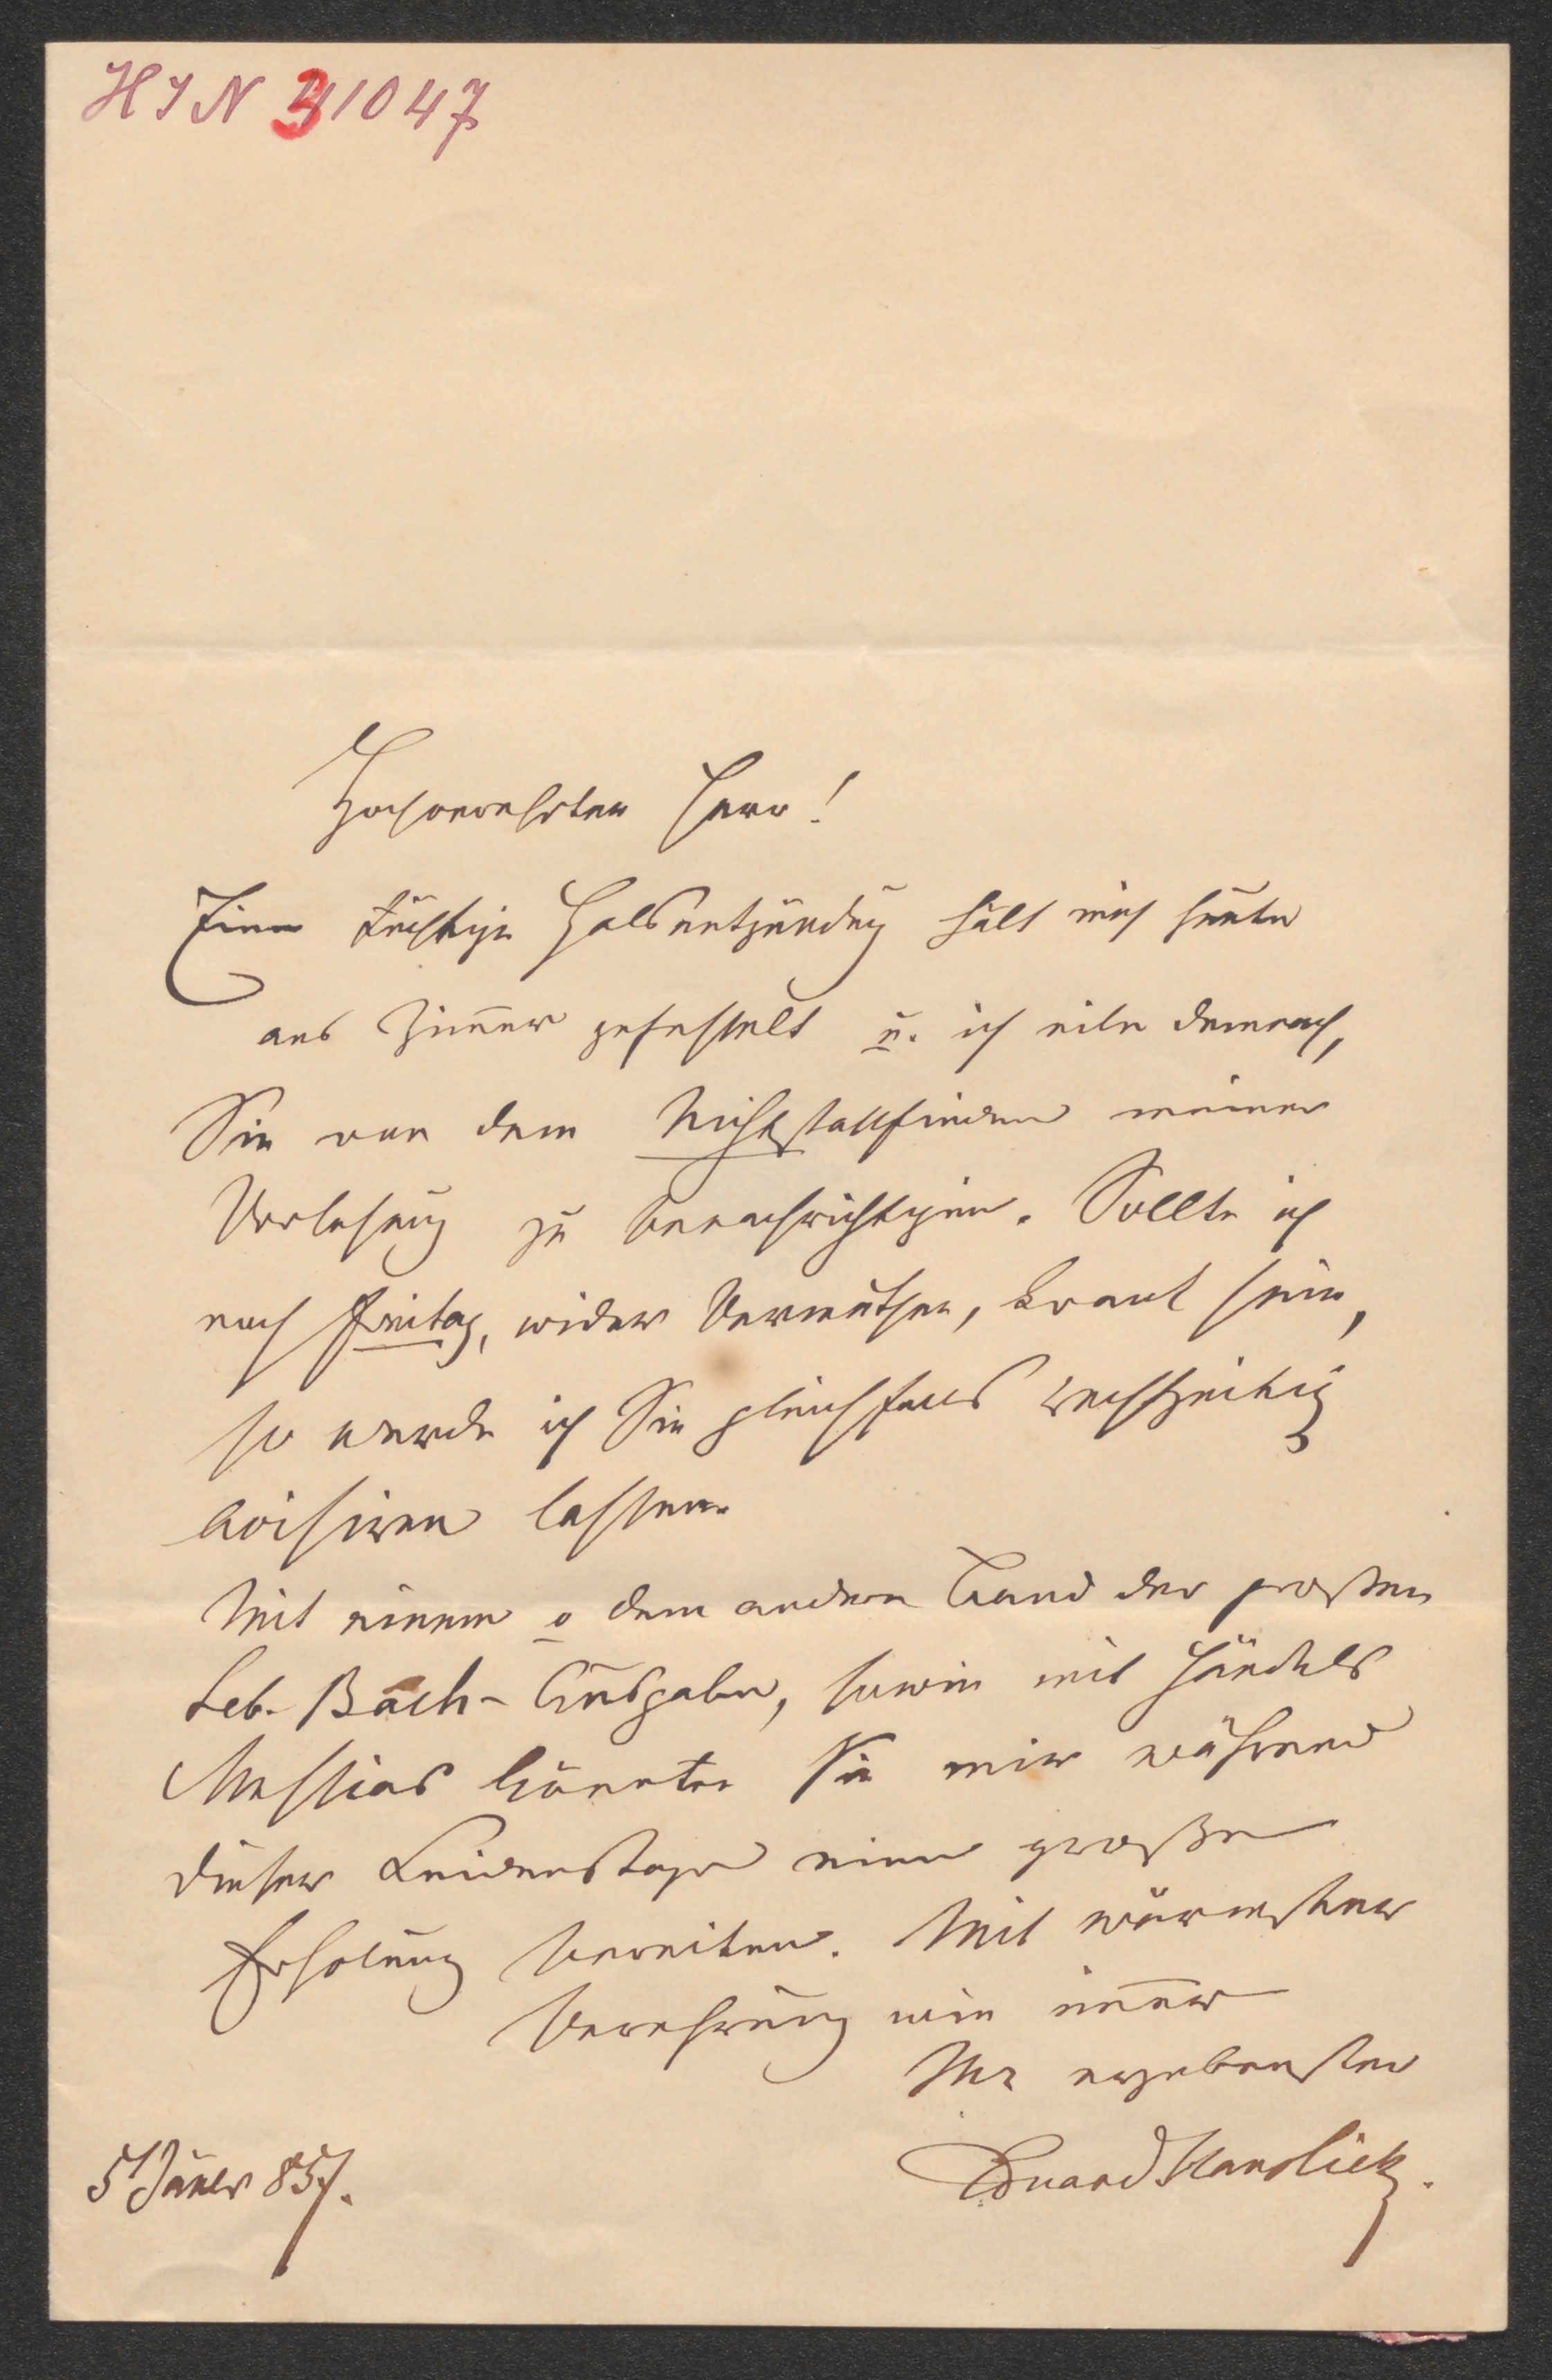 HIN 31047
Hochverehrter Herr!
Eine tüchtige Halsentzündung hält mich heute
ans Zimmer gefesselt u. ich eile demnach,
Sie von dem Nichtstattfinden meiner
Vorlesung zu benachrichtigen. Sollte ich
noch Freitag, wider Vermuthen, krank sein,
so werde ich Sie gleichfalls rechtzeitig
avisiren lassen.
Mit einem o dem andern Band der großen
Seb. Bach-Ausgabe, sowie mit Händels
Messias könnten Sie mir während
dieser Leidenstage eine große
Erholung bereiten. Mit wärmster
Verehrung wie immer
Ihr ergebenster
Eduard Hanslick.
5 Jäner 857.